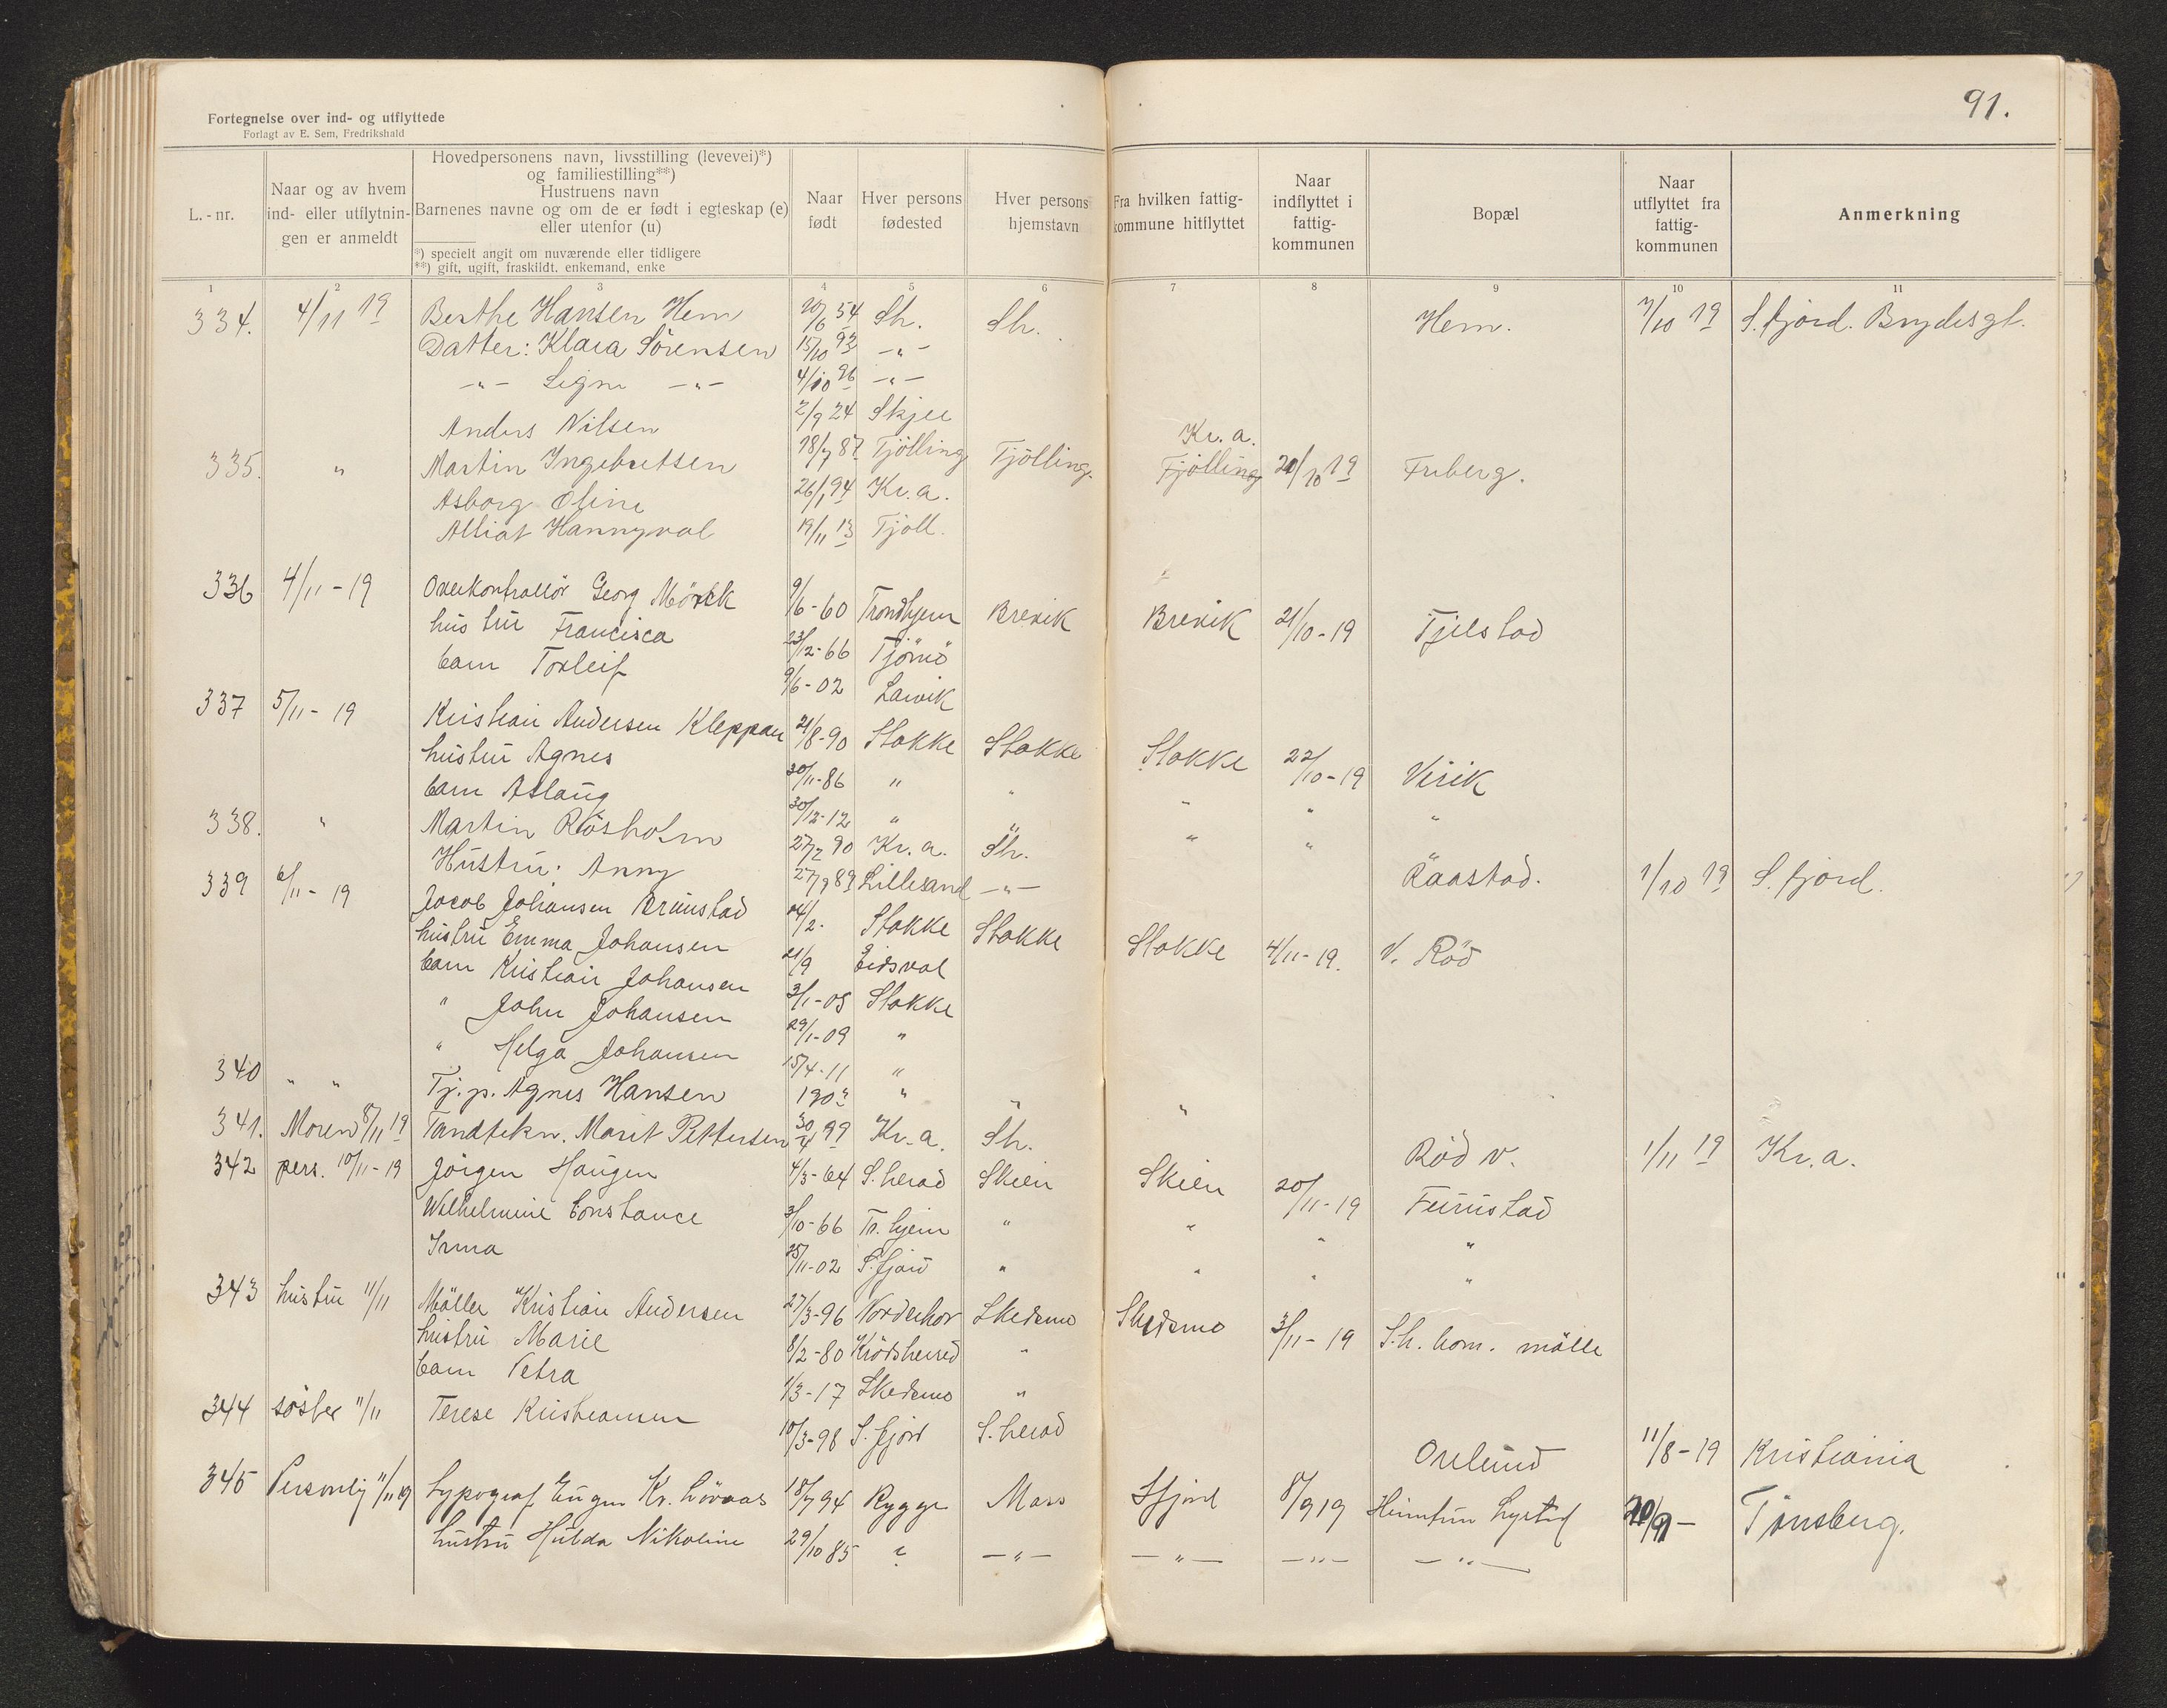 91.
Fortegnelse over ind- og utflyttede
Forlagt av E. Sem, Fredrikshald
L.-nr.
Naar og av hvem ind- eller utflytningen er anmeldt
Hovedpersonens navn, livsstilling (levevei)*)
og familiestilling**)
Hustruens navn
Barnenes navne og om de er født i egteskap (e)
eller utenfor (u)
*) specielt angit om nuværende eller tidligere
**) gift, ugift, fraskildt. enkemand, enke
Naar født
Hver persons fødested
Hver persons hjemstavn
Fra hvilken fattigkommune hitflyttet
Naar indflyttet i fattigkommunen
Bopæl
Naar utflyttet fra fattigkommunen
Anmerkning
1 2 3 4 5 6 7 8 9 10 11
334. 4/11 19 Berthe Hansen Hem 20/6 54 Sh. Sh. Hem. 7/10 19 S.fjord. Brydesgt.
Datter: Klara Sörensen 15/10 93 -„-
-„- Signe -„- 4/10 96 -„-
Anders Nilsen 2/9 24 Skjee
335. „ Martin Ingebretsen 18/7 87 Tjölling Tjölling. Kr. a. Tjölling 20/10 19 Fuberg.
Asborg Oline 26/1 94 Kr. a.
Hannyval 19/11 13 Tjöll.
336 4/11-19 Overkontrollör Georg Mörck 9/6-60 Trondhjem Brevik Brevik 21/10-19 Fjelstad
hustru Francisca 23/12-66 Tjömö
barn Torleif 9/6-02 Larvik
337 5/11-19 Kristian Andersen Kleppan 21/8-90 Stokke Stokke Stokke 22/10-19 Virik
hustru Agnes 30/11-86 " " " " "
barn Aslaug 30/12-12 " " " "
338. " Martin Rösholm 27/2 90 Kr. a. Sh. Raastad. 1/10 19 S.fjord.
Hustru: Anny 27/9 89 Lillesand -„-
339 6/11-19 Jacob Johansen Brunstad 24/2. Stokke Stokke Stokke 4/11-19. V. Röd
hustru Emma Johansen 21/9 Eidsvol
barn Kristian Johansen 3/1-05 Stokke
" John Johansen 29/1-09 "
" Helga Johansen 15/4-11 "
340 " " Tj.p. Agnes Hansen 1903 " " "
341. Moren 8/11 19 Tandtekn. Marit Pettersen 30/4 99 Kr. a. Sh. Röd v. 1/11 19 Kr. a.
342 pers. 10/11-19 Jörgen Haugen 4/3-64 S.herad Skien Skien 20/11-19 Furustad
Wilhelmine Constance 3/10-66 Tr.hjem " " " "
Irma 25/11-02 S.fjord " " " "
343 hustru 11/11 Möller Kristian Andersen 27/3-96 Norderhov Skedsmo Skedsmo 3/11-19 S.h. kom. mölle
hustru Marie 8/2-80 Krödsherred "
barn Petra 1/3-17 Skedsmo "
344 söster 11/11 Terese Kristiansen 10/3-98 S.fjord S.herad Orelund 11/8-19 Kristiania
345 Personlig 11/11 19 typograf Eugen Kr. Lövaas 18/7 94 Rygge Moss Sfjord 8/9 19 Heimtun Lystad 20/9- Tönsberg.
hustru Hulda Nikoline 29/10 85 " -„- -„- -„- -„-